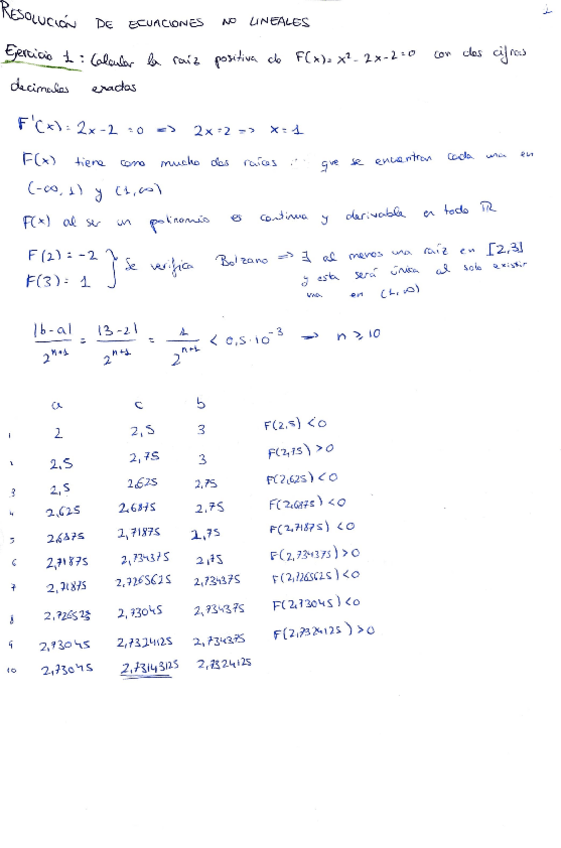 RESOLUCIÓN DE ECUACIONES NO LINEALES 1
Ejercicio 1: Calcular la raíz positiva de F(x)=x²-2x-2=0 con dos cifras
decimales exactas
F'(x)=2x-2=0 => 2x=2 => x=1
F(x) tiene como mucho dos raíces que se encuentran cada una en
(-∞,1) y (1,∞)
F(x) al ser un polinomio es continua y derivable en todo ℝ
F(2)=-2
F(3)=1 } Se verifica Bolzano => ∃ al menos una raíz en [2,3]
y esta será única al solo existir
una en (1,∞)
|b-a|/2ⁿ⁺¹ = |3-2|/2ⁿ⁺¹ = 1/2ⁿ⁺¹ < 0,5·10⁻³ → n ≥ 10
a c b
1 2 2,5 3 F(2,5)<0
2,5 2,75 3 F(2,75)>0
3 2,5 2,625 2,75 F(2,625)<0
4 2,625 2,6875 2,75 F(2,6875)<0
5 2,6875 2,71875 2,75 F(2,71875)<0
6 2,71875 2,734375 2,75 F(2,734375)>0
7 2,71875 2,7265625 2,734375 F(2,7265625)<0
8 2,73045 2,734375 F(2,73045)<0
9 2,73045 2,7324125 2,734375 F(2,7324125)>0
10 2,73045 2,73143125 2,7324125